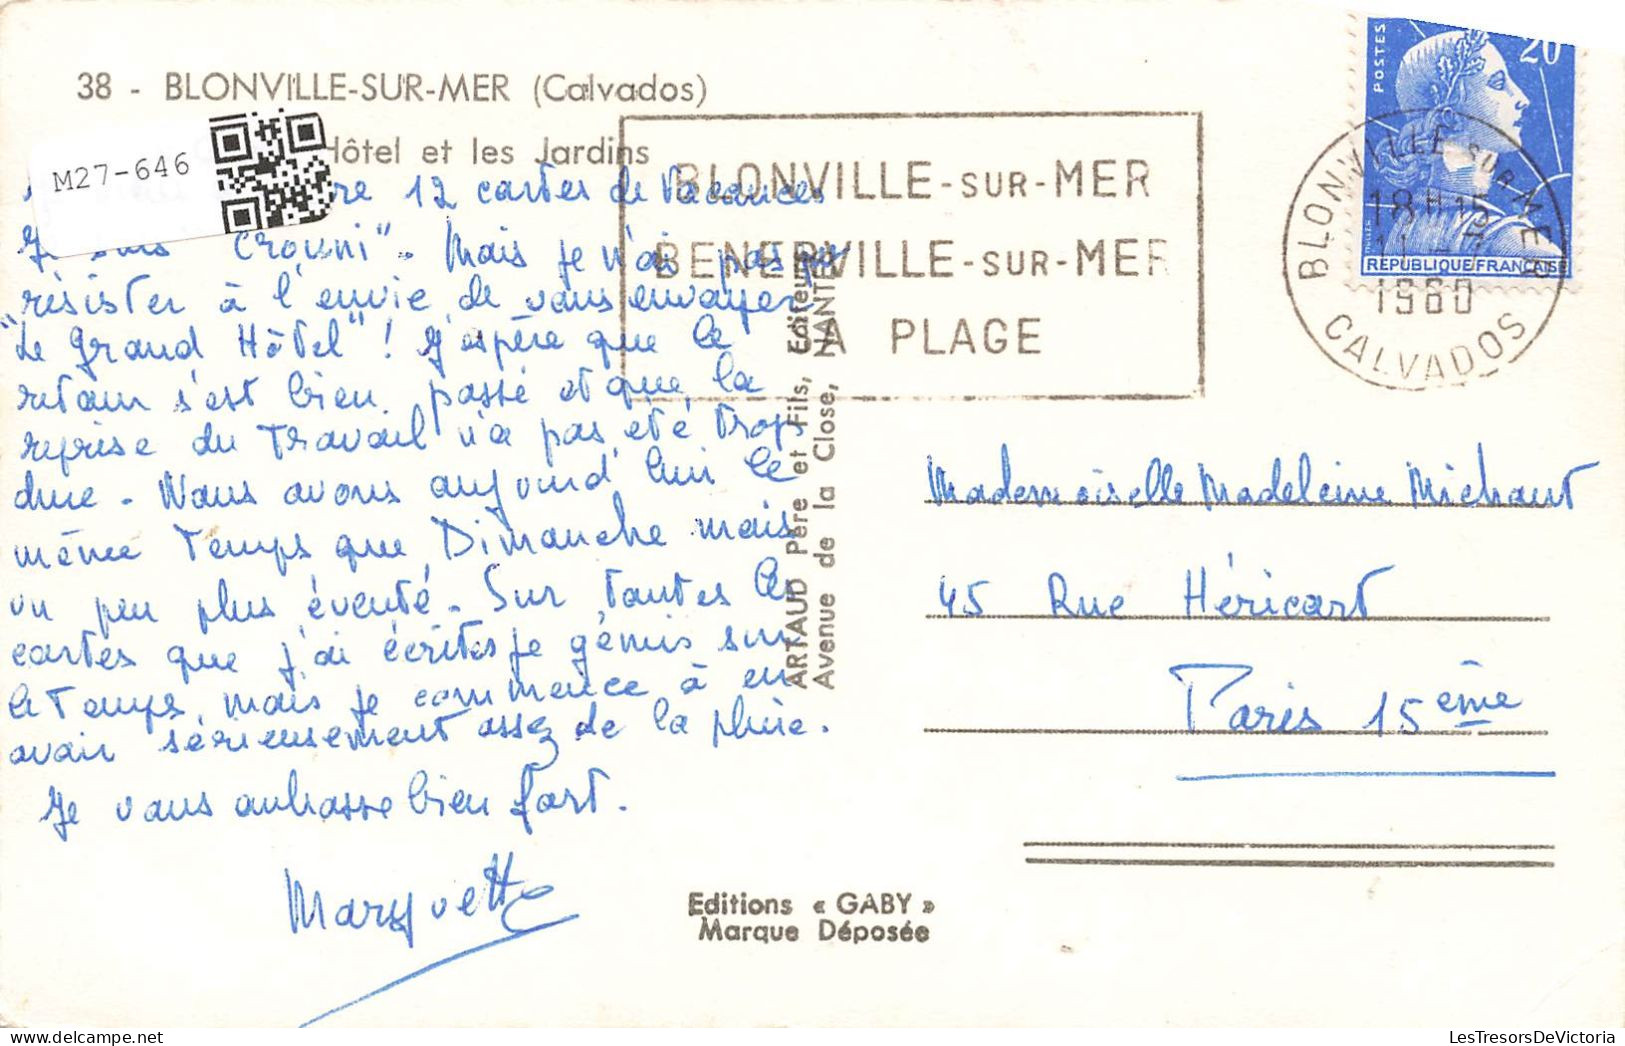 38 - BLONVILLE-SUR-MER (Calvados)
Hôtel et les Jardins
M27-646
12 cartes de vacances
"crouni". Mais je n'ai pas pu
résister à l'envie de vous envoyer
"Le Grand Hôtel" ! J'espère que le
retour s'est bien passé et que la
reprise du travail n'a pas été trop
dure - Nous avons aujourd'hui le
même temps que Dimanche mais
un peu plus éventé - Sur toutes les
cartes que j'ai écrites je gémis sur
le temps, mais je commence à en
avoir sérieusement assez de la pluie.
Je vous embrasse bien fort.
Marguette
BLONVILLE-SUR-MER
BENERVILLE-SUR-MER
SA PLAGE
ARTAUD Père et Fils, Editeurs
Avenue de la Close, NANTES
Editions « GABY »
Marque Déposée
POSTES
20
REPUBLIQUE FRANÇAISE
BLONVILLE SUR MER
18 H 15
1960
CALVADOS
Mademoiselle Madeleine Michaut
45 Rue Héricart
Paris 15ème
delcampe.net
LesTresorsDeVictoria